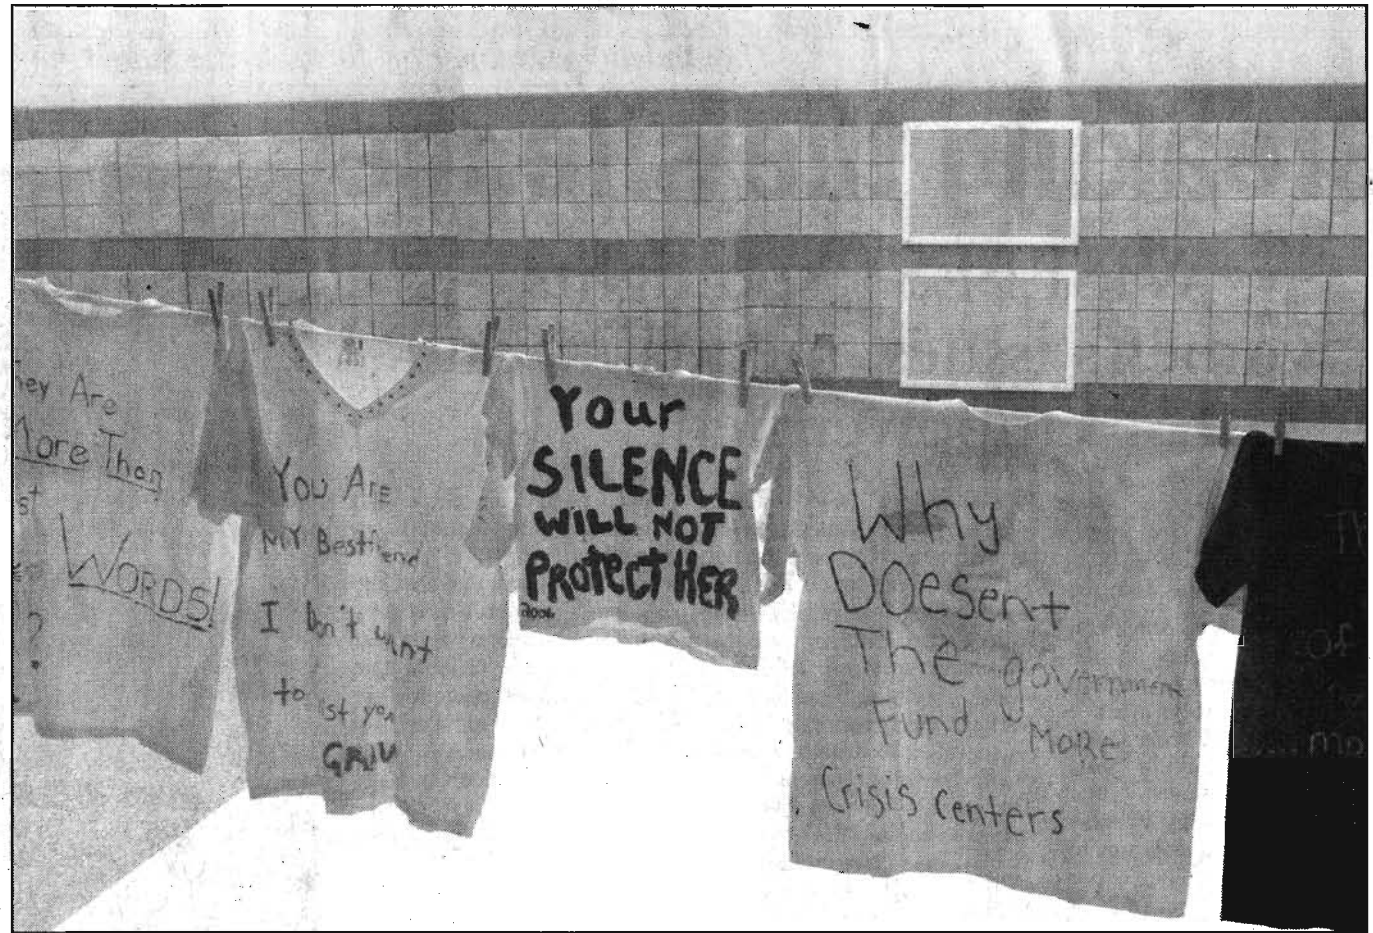 hey Are
More Than
st
WORDS!
?
You Are
MY Bestfriend
I Don't want
to
you
Your
SILENCE
WILL NOT
PROTECT HER
2006
Why
DOesent
The government
Fund MORE
Crisis Centers
Th
of
mo